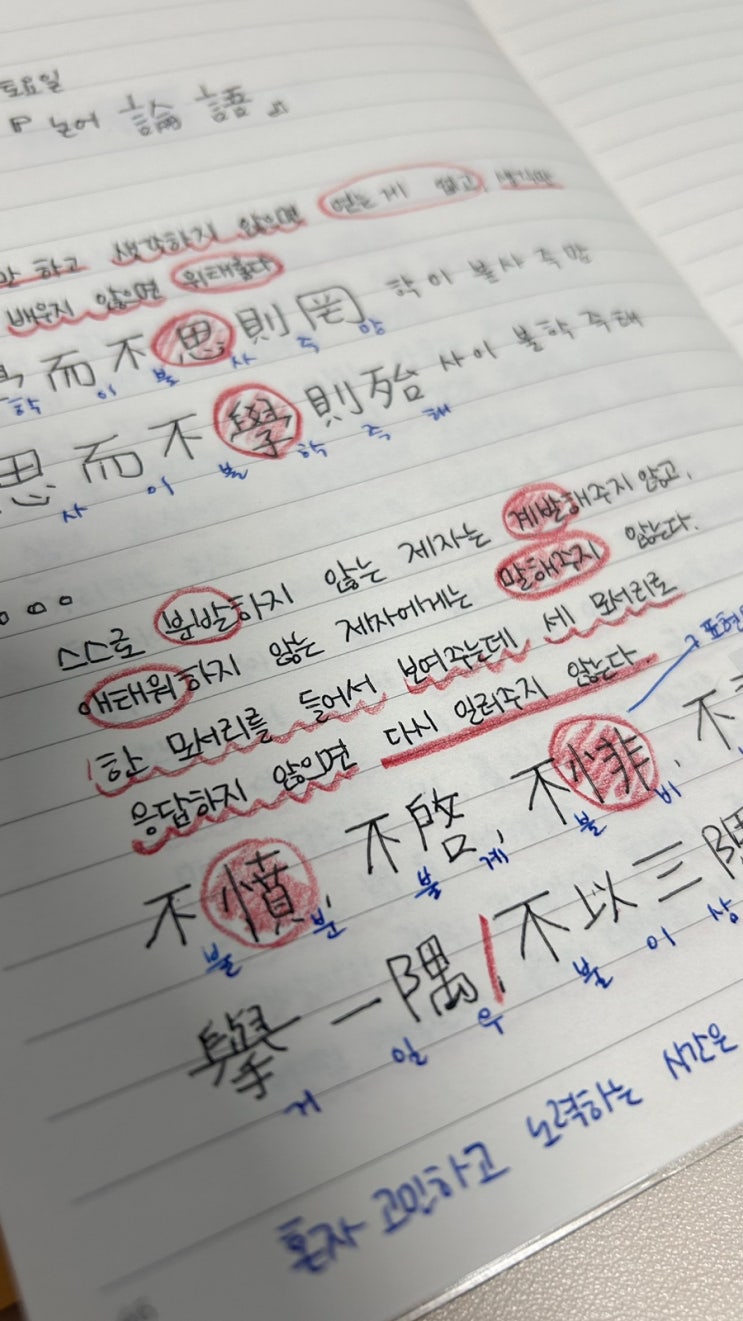 토요일
논어 論語
만 하고 생각하지 않으면 얻는 게 없고, 생각만
배우지 않으면 위태롭다
而不思則罔 학이불사즉망
학 이 불 사 즉 망
思而不學則殆 사이불학즉태
사 이 불 학 즉 태
스스로 분발하지 않는 제자는 계발해주지 않고,
애태워하지 않는 제자에게는 말해주지 않는다.
한 모서리를 들어서 보여주는데 세 모서리로
응답하지 않으면 다시 일러주지 않는다.
표현
不憤, 不啓, 不悱, 不
불 분 불 계 불 비
擧一隅, 不以三隅
거 일 우 불 이 삼
혼자 고민하고 노력하는 시간은